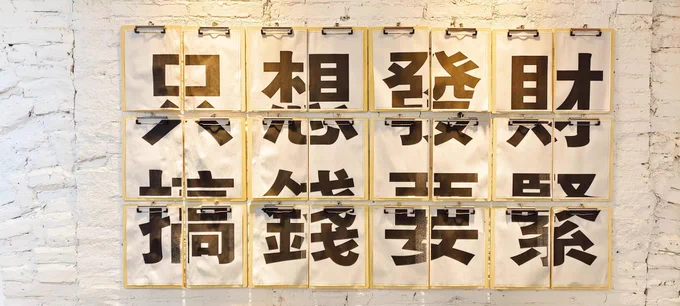 只想發財
搞錢要緊